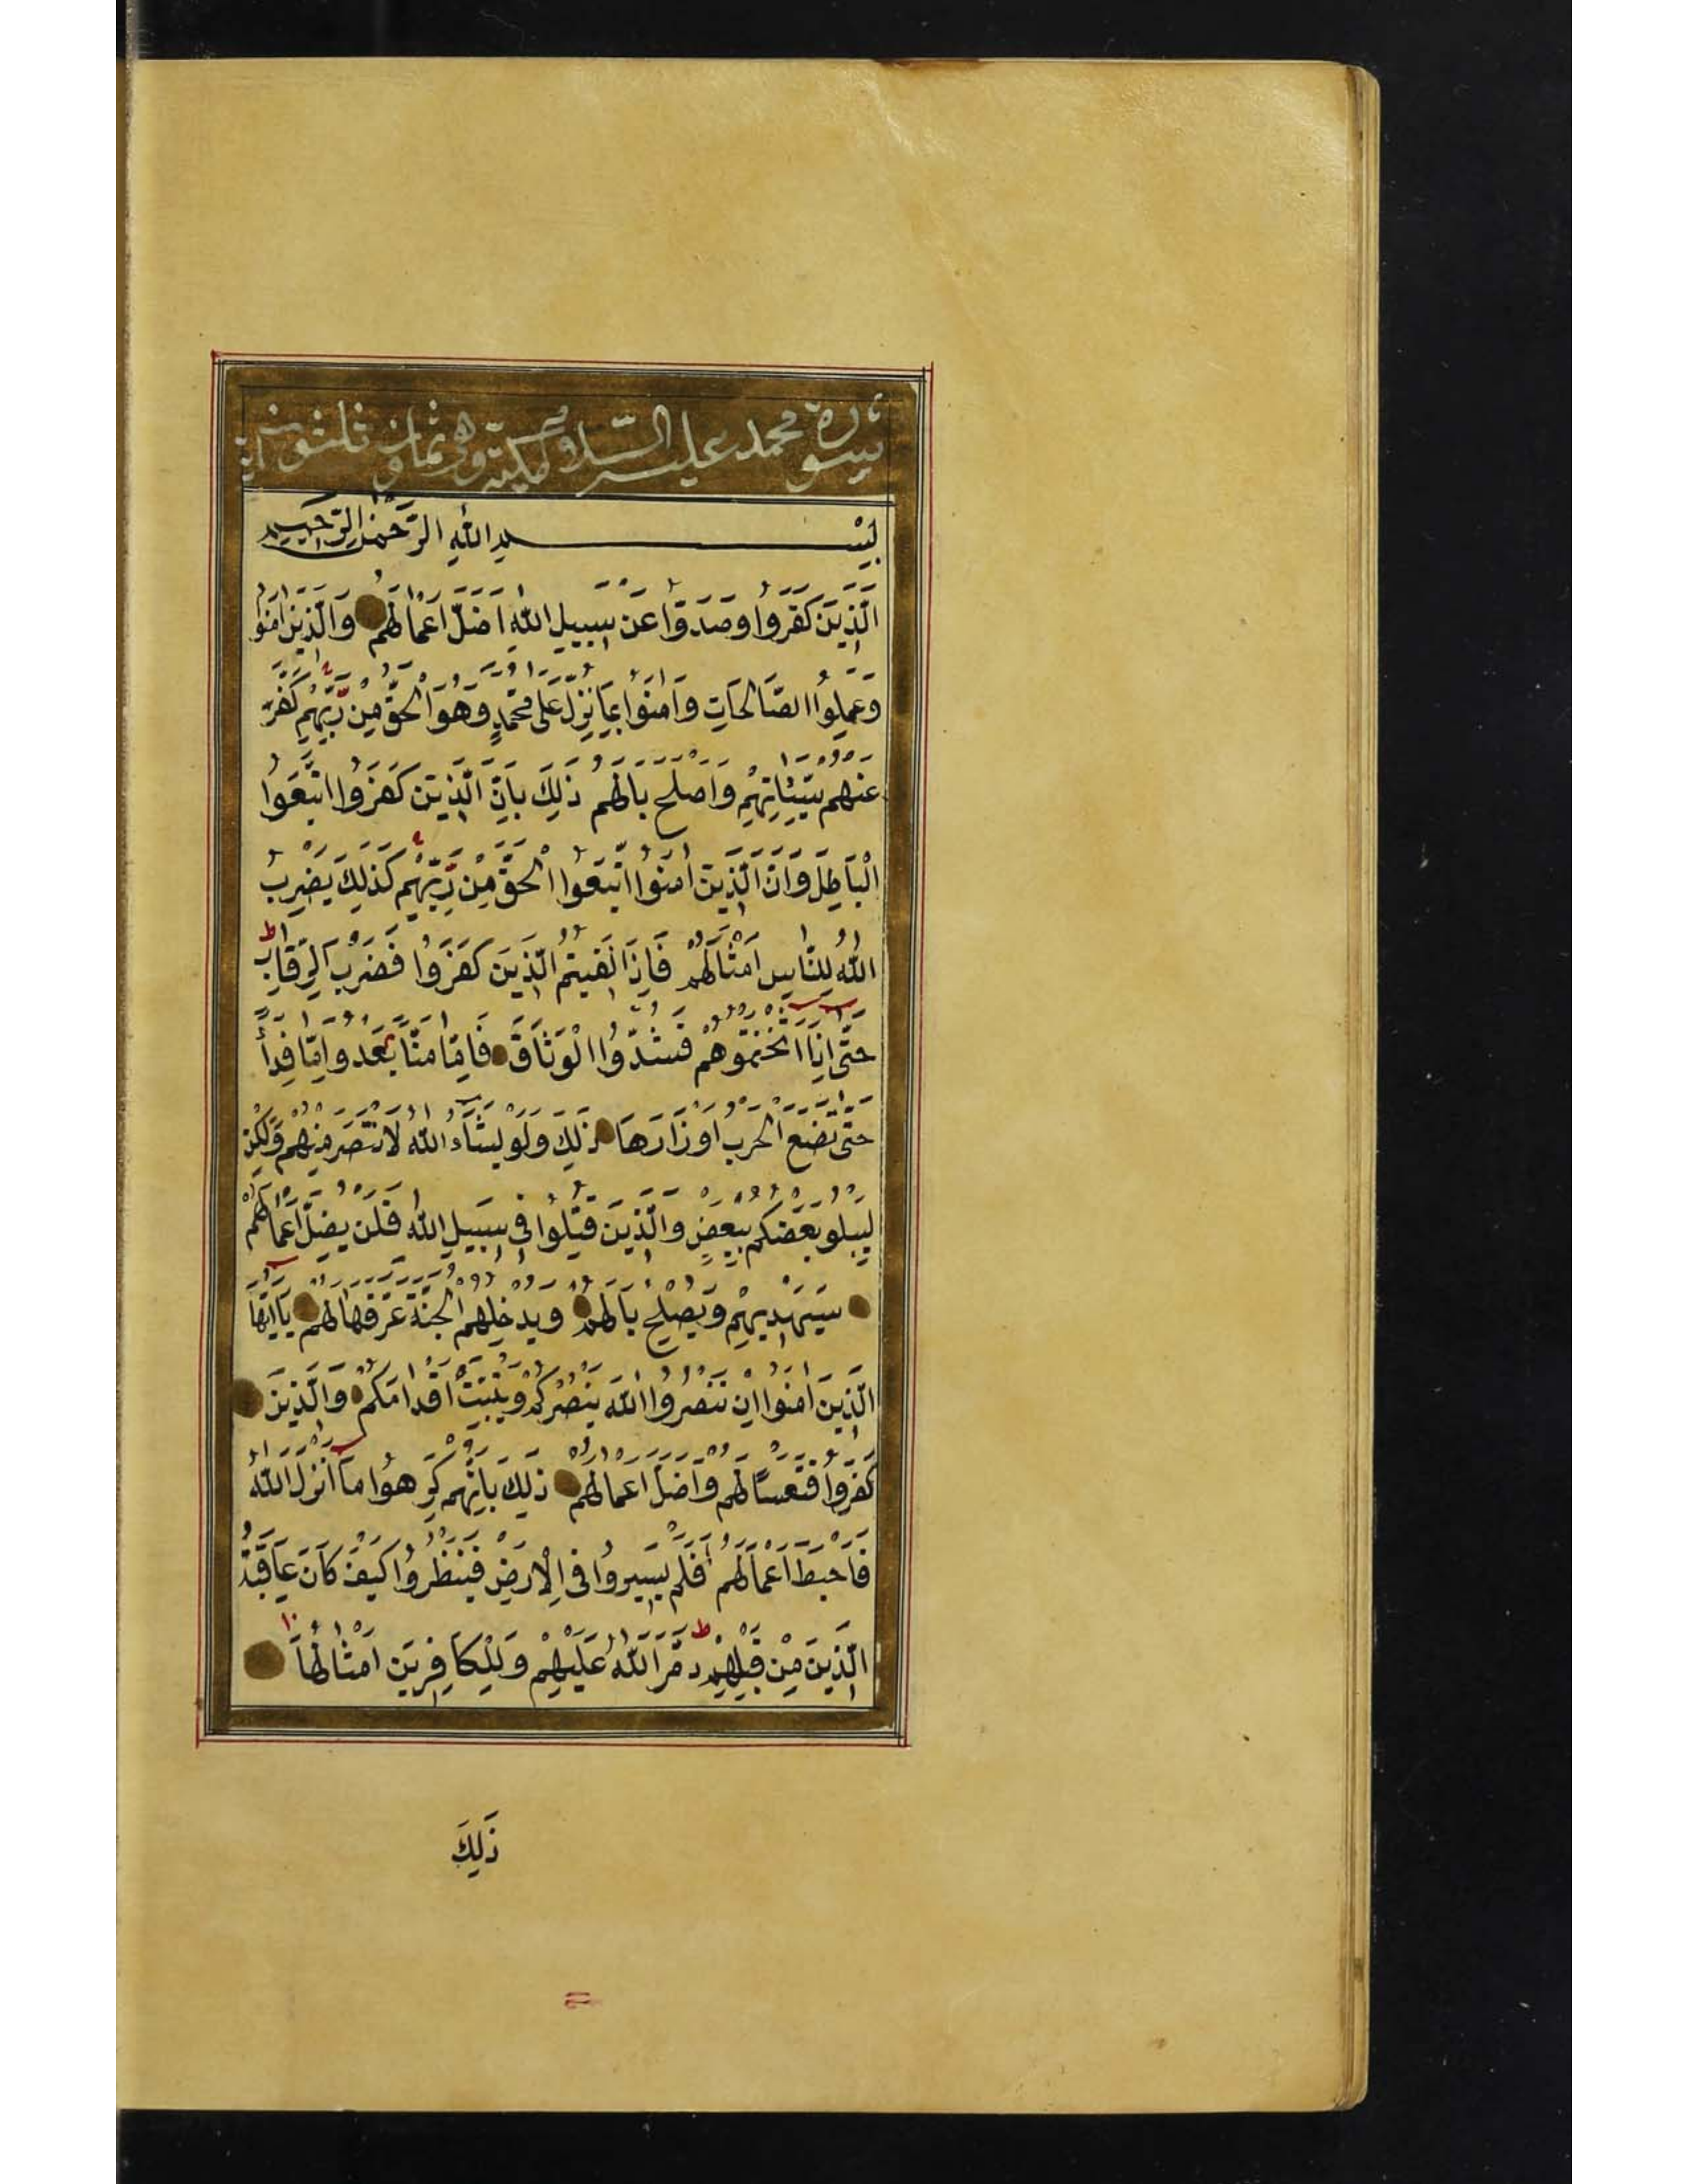 سورة محمد عليه السلام مكية وهي ثمان وثلثون آية
بسم الله الرحمن الرحيم
الَّذِينَ كَفَرُوا وَصَدُّوا عَنْ سَبِيلِ اللهِ اَضَلَّ اَعْمَالَهُمْ وَالَّذِينَ اٰمَنُوا
وَعَمِلُوا الصَّالِحَاتِ وَاٰمَنُوا بِمَا نُزِّلَ عَلٰى مُحَمَّدٍ وَهُوَ الْحَقُّ مِنْ رَبِّهِمْ كَفَّرَ
عَنْهُمْ سَيِّئَاتِهِمْ وَاَصْلَحَ بَالَهُمْ ذٰلِكَ بِاَنَّ الَّذِينَ كَفَرُوا اتَّبَعُوا
الْبَاطِلَ وَاَنَّ الَّذِينَ اٰمَنُوا اتَّبَعُوا الْحَقَّ مِنْ رَبِّهِمْ كَذٰلِكَ يَضْرِبُ
اللهُ لِلنَّاسِ اَمْثَالَهُمْ فَاِذَا لَقِيتُمُ الَّذِينَ كَفَرُوا فَضَرْبَ الرِّقَابِ ط
حَتّٰى اِذَا اَثْخَنْتُمُوهُمْ فَشُدُّوا الْوَثَاقَ فَاِمَّا مَنًّا بَعْدُ وَاِمَّا فِدَاءً
حَتّٰى تَضَعَ الْحَرْبُ اَوْزَارَهَا ذٰلِكَ وَلَوْ يَشَاءُ اللهُ لَانْتَصَرَ مِنْهُمْ وَلٰكِنْ
لِيَبْلُوَ بَعْضَكُمْ بِبَعْضٍ وَالَّذِينَ قُتِلُوا فِي سَبِيلِ اللهِ فَلَنْ يُضِلَّ اَعْمَالَهُمْ
سَيَهْدِيهِمْ وَيُصْلِحُ بَالَهُمْ وَيُدْخِلُهُمُ الْجَنَّةَ عَرَّفَهَا لَهُمْ يَا اَيُّهَا
الَّذِينَ اٰمَنُوا اِنْ تَنْصُرُوا اللهَ يَنْصُرْكُمْ وَيُثَبِّتْ اَقْدَامَكُمْ وَالَّذِينَ
كَفَرُوا فَتَعْسًا لَهُمْ وَاَضَلَّ اَعْمَالَهُمْ ذٰلِكَ بِاَنَّهُمْ كَرِهُوا مَا اَنْزَلَ اللهُ
فَاَحْبَطَ اَعْمَالَهُمْ اَفَلَمْ يَسِيرُوا فِي الْاَرْضِ فَيَنْظُرُوا كَيْفَ كَانَ عَاقِبَةُ
الَّذِينَ مِنْ قَبْلِهِمْ ط دَمَّرَ اللهُ عَلَيْهِمْ وَلِلْكَافِرِينَ اَمْثَالُهَا ١٠
ذٰلِكَ